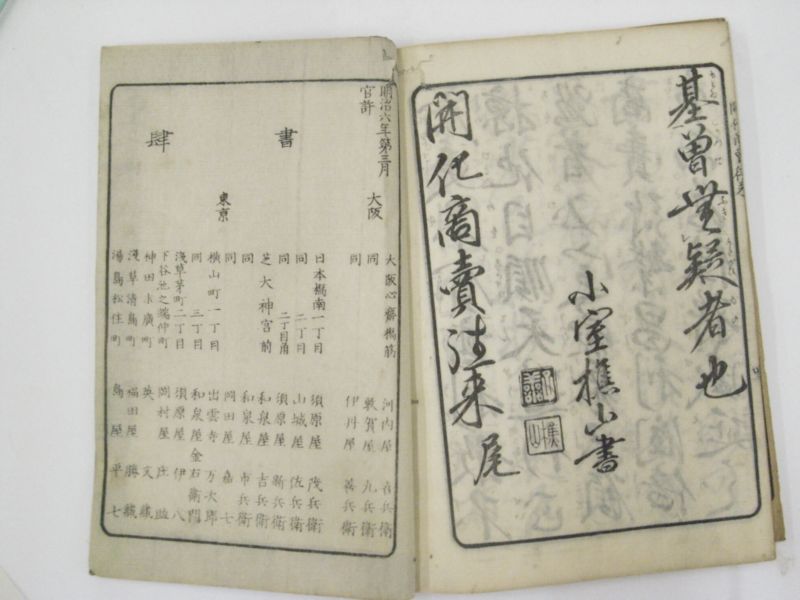 基曽無疑者也
小室樵山書
開化商賣往来 尾
明治六年第三月
官許
書肆
大阪
大阪心齋橋筋 河内屋 喜兵衛
同 敦賀屋 九兵衛
同 伊丹屋 善兵衛
東京
日本橋南一丁目 須原屋 茂兵衛
同 二丁目 山城屋 佐兵衛
同 二丁目角 須原屋 新兵衛
芝大神宮前 和泉屋 吉兵衛
同 和泉屋 市兵衛
同 岡田屋 嘉七
横山町一丁目 出雲寺 万次郎
同 三丁目 和泉屋 金右衛門
浅草茅町二丁目 須原屋 伊八
下谷池之端仲町 岡村屋 庄助
神田末廣町 英 文蔵
浅草清島町 福田屋 勝蔵
湯島松住町 島屋 平七